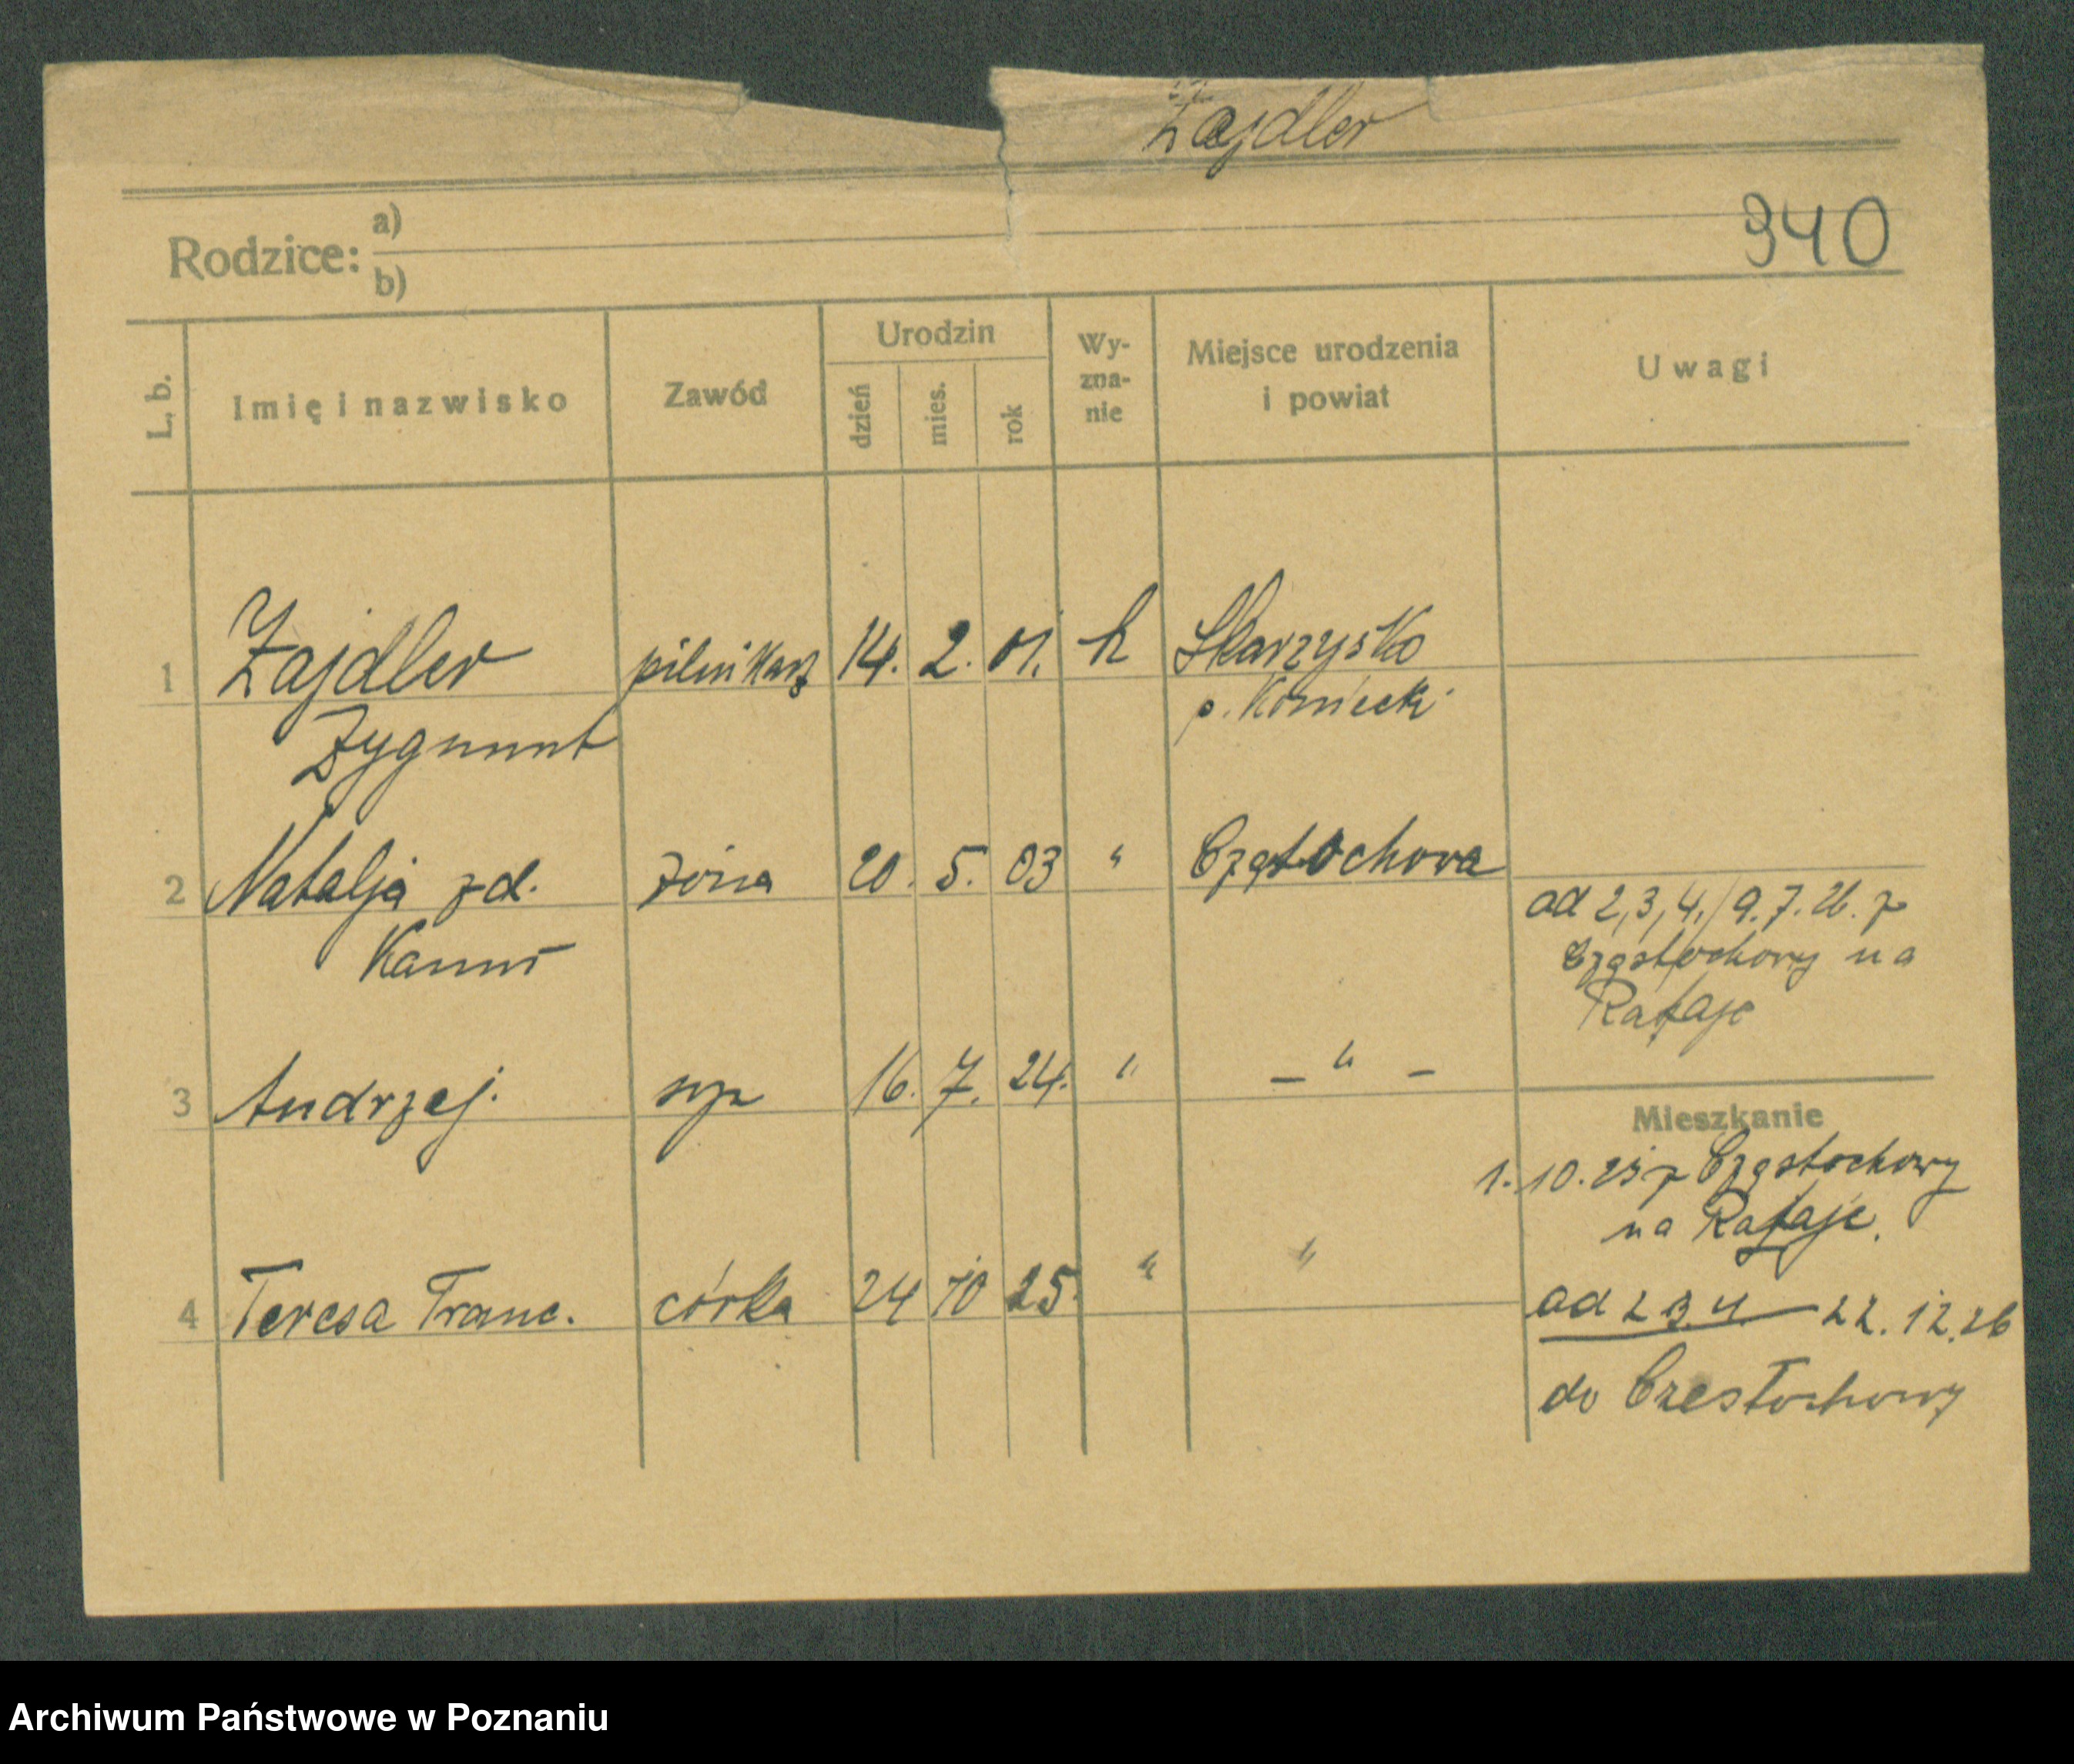 Zajdler
Rodzice: a)
b)
940
L. b. Imię i nazwisko Zawód Urodzin dzień mies. rok Wy-zna-nie Miejsce urodzenia i powiat Uwagi
1 Zajdler pilnikarz 14. 2. 01. k Skarzysko
Zygmunt p. Koniecki
2 Natalja zd. żona 20. 5. 03 " Częstochowa
od 2,3,4./9.7.26. z
Kanus Częstochowy na
Rataje
3 Andrzej. syn 16. 7. 24. " – " –
Mieszkanie
1. 10. 25 z Częstochowy
na Rataje.
4 Teresa Franc. córka 24 10 25. " "
od 2 3. 4. — 22. 12. 26
do Czestochowy
Archiwum Państwowe w Poznaniu